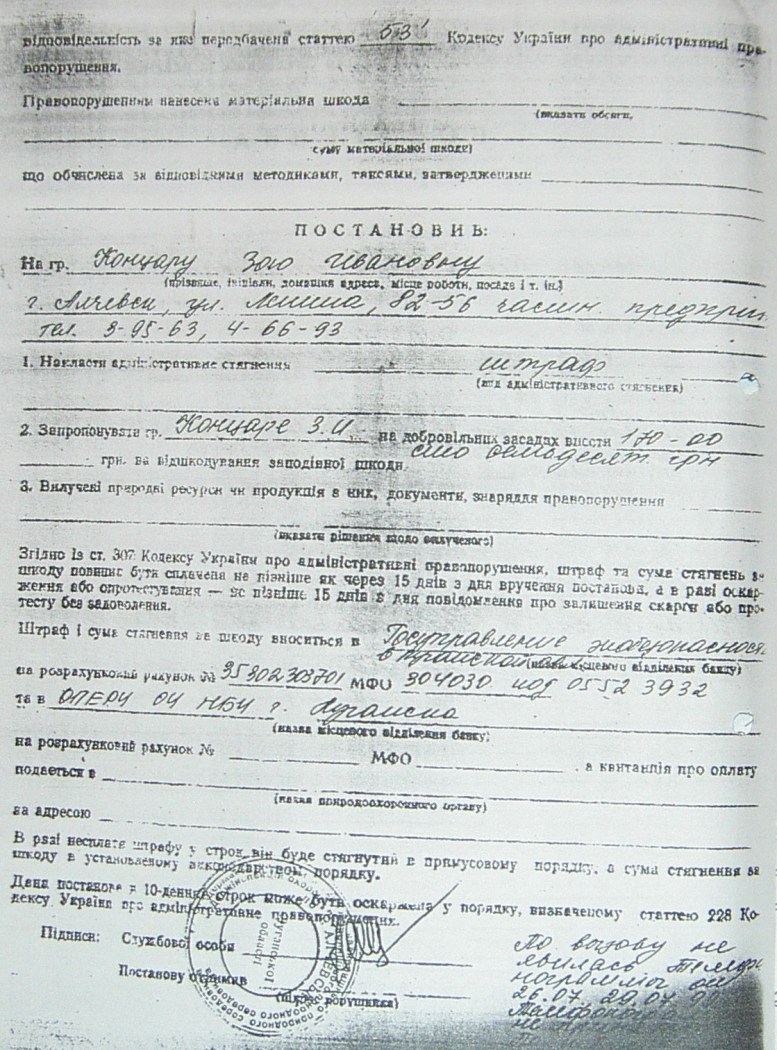 відповідельність за яке передбачена статтею 53' Кодексу України про адміністративні пра-
вопорушення.
Правопорушенням нанесена матеріальна шкода
(вказати обсяги,
суму матеріальної шкоди)
що обчислена за відповідними методиками, таксями, затвердженими
ПОСТАНОВИВ:
На гр. Концару Зою Ивановну
(прізвище, ініціали, домашня адреса, місце роботи, посада і т. ін.)
г. Алчевск, ул. Ленина, 82-56 частн. предпри
тел. 3-95-63, 4-66-93
1. Накласти адміністративне стягнення штраф
(вид адміністративного стягнення)
2. Запропонувати гр. Концаре З.И. на добровільних засадах внести 170-00
грн. на відшкодування заподівної шкоди. сто семдесят грн
3. Вилучені природні ресурси чи продукція з них, документи, знаряддя правопорушення
(вказати рішення щодо вилученого)
Згідно із ст. 307 Кодексу України про адміністративні правопорушення, штраф та сума стягнень за
шкоду повинні бути сплачена не пізніше як через 15 днів з дня вручення постанови, а в разі оскар-
ження або опротестування — не пізніше 15 днів з дня повідомлення про залишення скарги або про-
тесту без задоволення.
Штраф і сума стягнення за шкоду вноситься в Госуправление экобезопасност
в (назва місцевого відділення банку)
на розрахунковий рахунок № МФО 304030 код 0552 3932
та в ОПЕРУ ОУ НБУ г. Луганска
(назва місцевого відділення банку)
на розрахунковий рахунок № МФО , а квитанція про оплату
подається в
(назва природоохоронного органу)
за адресою
В разі несплати штрафу у строк він буде стягнутий в примусовому порядку, а сума стягнення за
шкоду в установленому законодавством порядку.
Дана постанова в 10-денний строк може бути оскаржена у порядку, визначеному статтею 228 Ко-
дексу України про адміністративне правопорушення.
Підписи: Службової особи
Постанову отримав
(підпис порушника)
Луганської області
По вызову не
явилась
26.07. 29.07